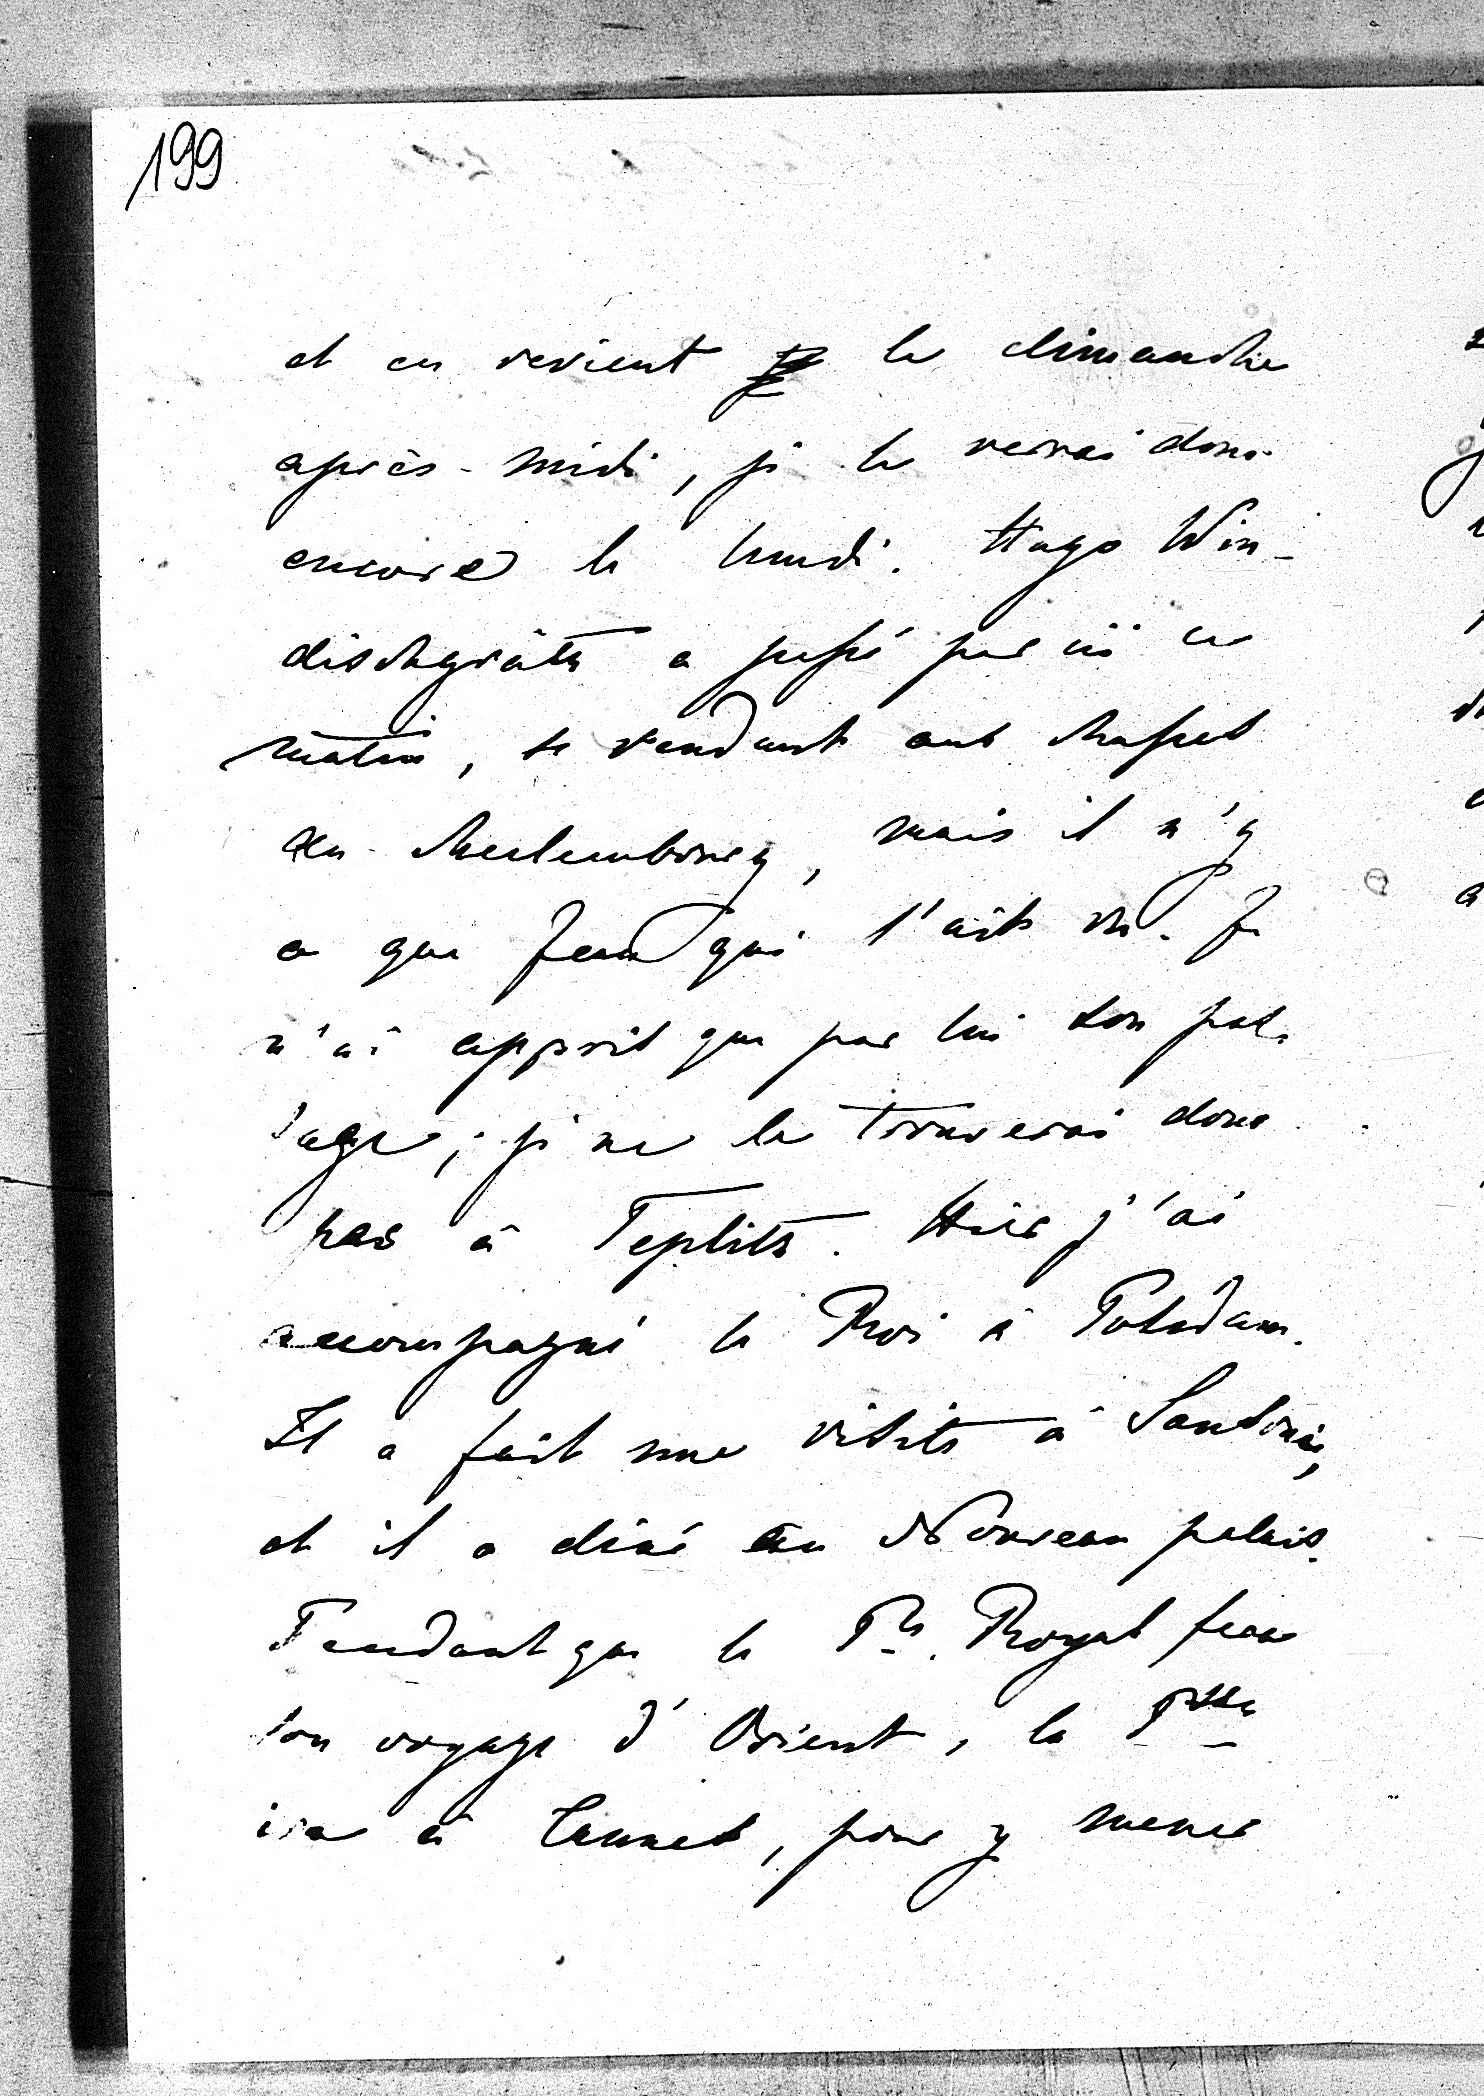 199
et en revient le dimanche
après-midi, je le verrai donc
encore le lundi. Hugo Win-
dischgrätz a passé par ici ce
matin, se rendant aux chasses
du Mecklembourg, mais il n'y
a que Fend qui l'ait vu. Je
n'ai apprit que par lui son pas-
sage; je ne le trouverai donc
pas à Teplitz. Hier j'ai
accompagné le Roi à Potsdam.
Il a fait une visite à Sanssouci,
et il a diné au Nouveau palais.
Pendant que le Pce. Royal fera
son voyage d'Orient, la Psse
ira à Cannes, pour y mener